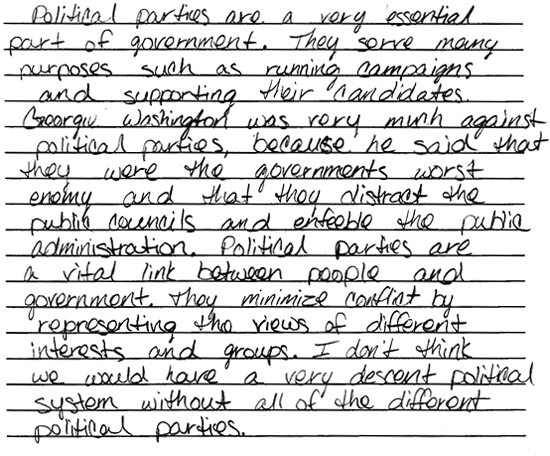 Political parties are a very essential
part of government. They serve many
purposes such as running campaigns
and supporting their candidates.
George Washington was very much against
political parties, because he said that
they were the governments worst
enemy and that they distract the
public councils and enfeeble the public
administration. Political parties are
a vital link between people and
government. They minimize conflict by
representing the views of different
interests and groups. I don't think
we would have a very descent political
system without all of the different
political parties.